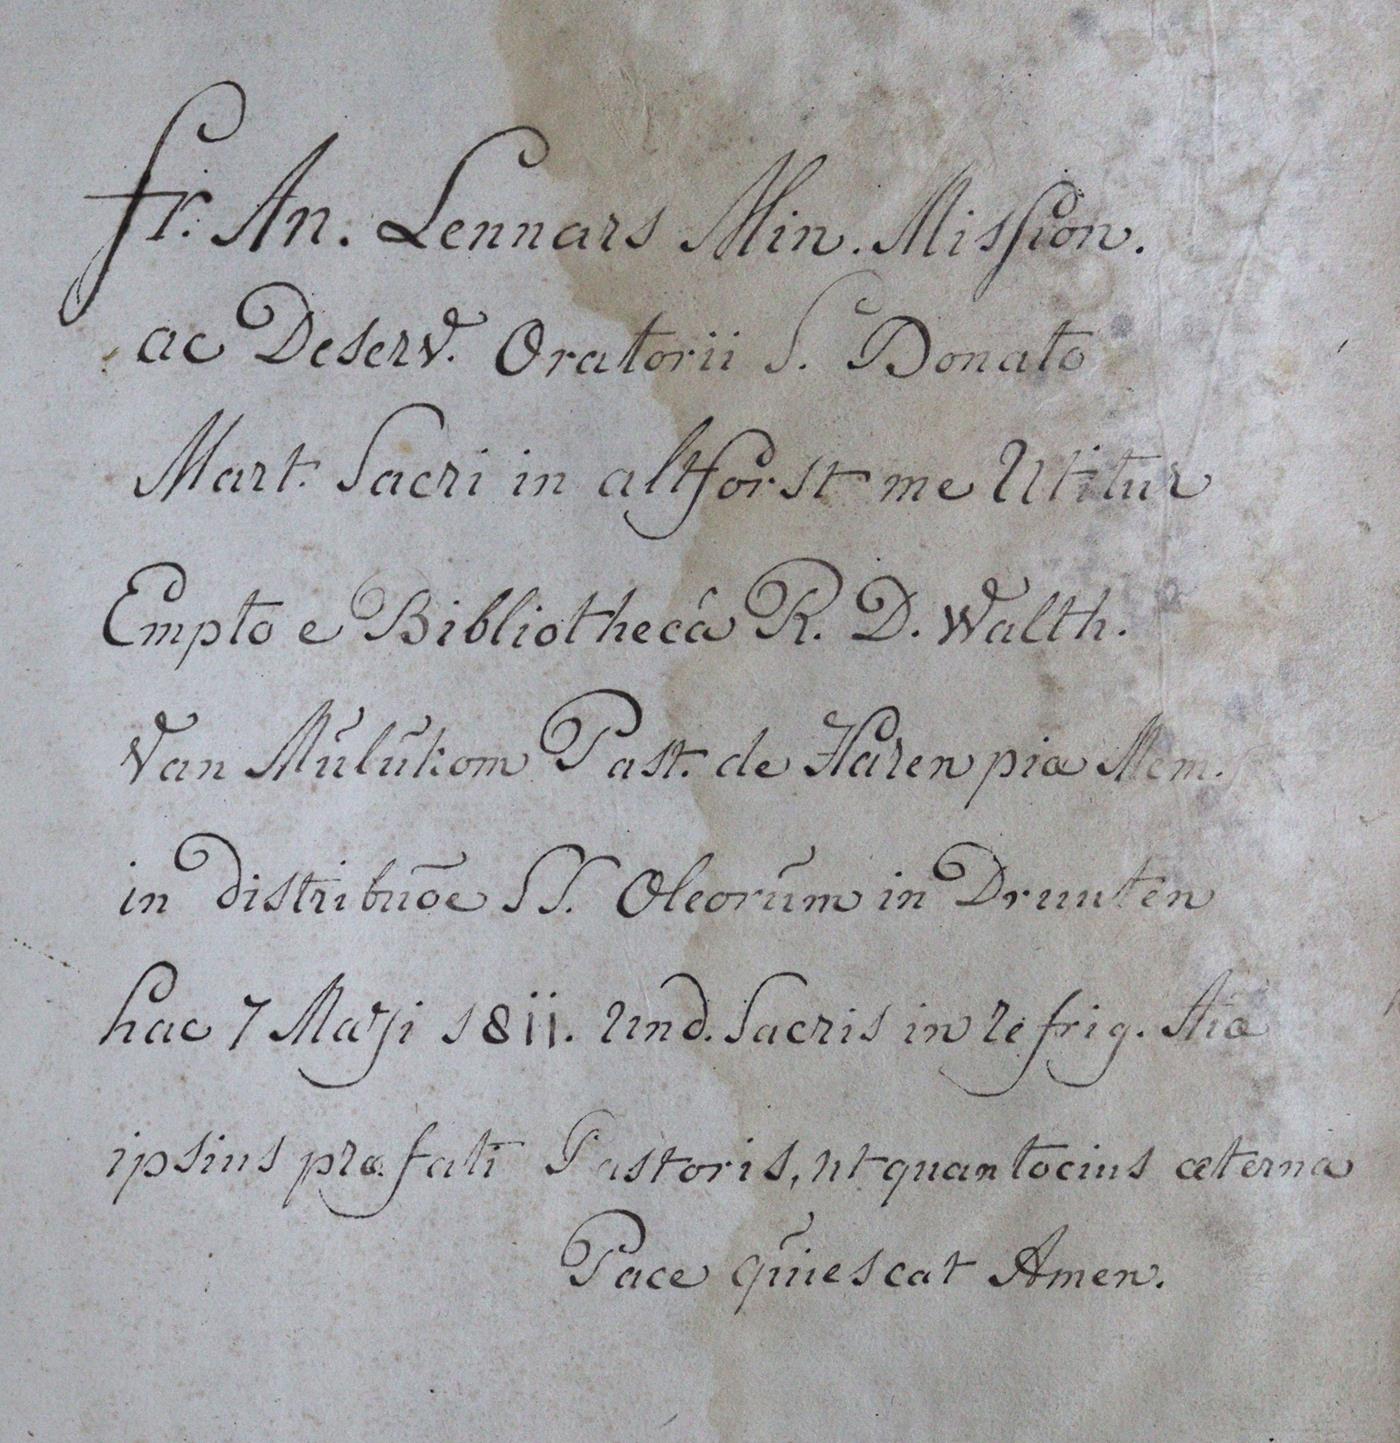 Fr. An. Lennars Min. Mission.
ac Deserv. Oratorii S. Donato
Mart. Sacri in altforst me Utitur
Empto e Bibliothecâ R. D. Walth.
Van Mŭlŭkom Past. de Haren piæ Mem.
in distribuōe SS. Oleorŭm in Druuten
hac 7 Maji 1811. Und. Sacris in refrig. Aīæ
ipsius præfati Pastoris, ut quantocius æterna
Pace qŭiescat Amen.